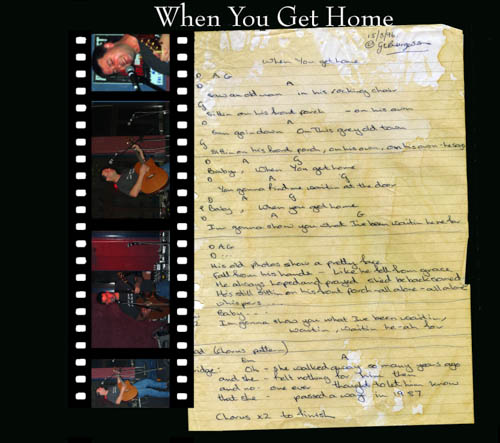 When You Get Home
15/3/96
When You get home
D A G
A
Saw an old man in his rocking chair
G
Sitten on his front porch - on his own
D A
Sun goin down On this grey old town
G
Sitten on his front porch, on his own, on his own - he says
D A G
Baby, When You get home
D A G
You gonna find me waitin at the door
D A G
Baby, when you get home
D A G
I'm gonna show you what I've been waitin here for
D A G
D
His old photos show a pretty face
Fall from his hands - Like he fell from grace
He always hoped and prayed she'd be back around
He's still sittin on his front porch - all alone - all alone
whispers
Baby
I'm gonna show you what I've been waitin,
waitin, waitin he-ah for
(chorus pattern)
Em A
Oh - she walked away so many years ago
and she - felt nothing for him then
and no - one ever thought to let him know
that she - passed away in 1957
Chorus x2 to finish